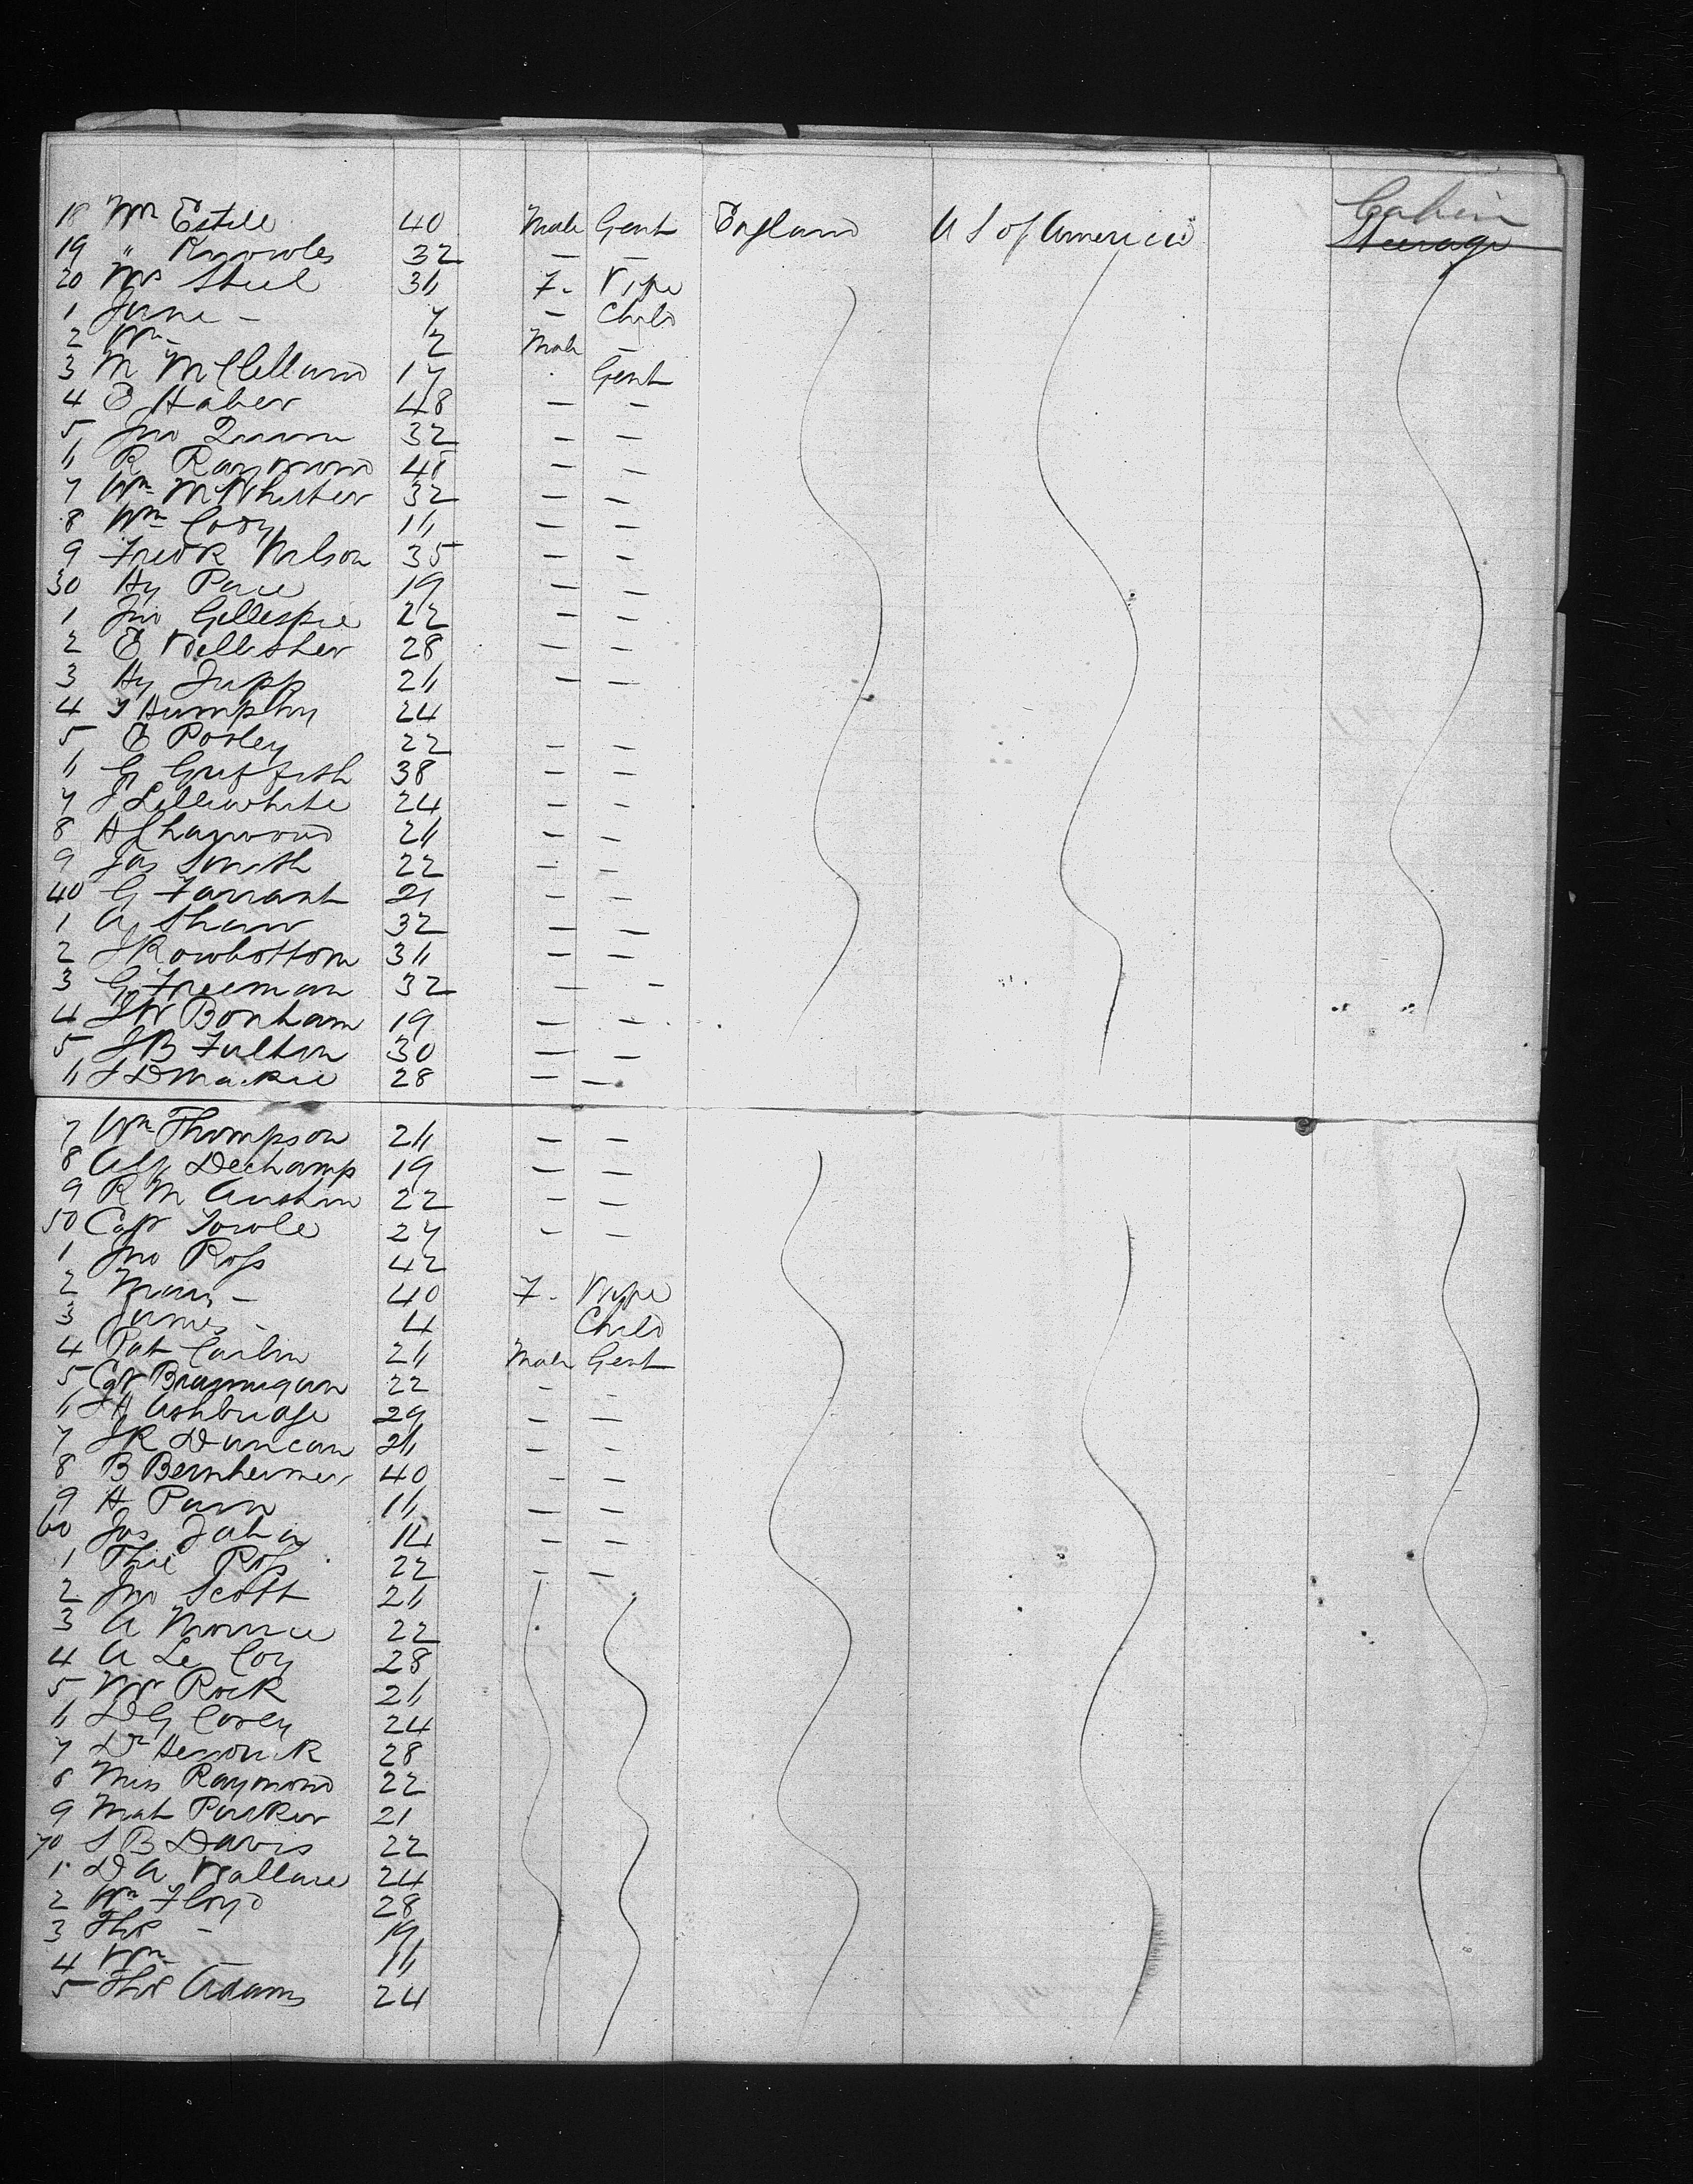 Cabin
18 Mr Estill 40 Male Gent England U S of America Steerage
19 " Knowles 32 — —
20 Mrs Steel 36 F. Wife
1 Jane — 7 — Child
2 Wm — 2 Male —
3 M McClelland 17 Gent
4 E Haber 48 — —
5 Jno Quinn 32 — —
6 R Raymond 45 — —
7 Wm McWhirter 32 — —
8 Wm Cory 16 — —
9 Fredk Nelson 35 — —
30 Hy Pace 19 — —
1 Jno Gillespie 22 — —
2 E Willisher 28 — —
3 Hy Jupp 26 — —
4 T Humphry 24
5 E Pooley 22 — —
6 G Griffith 38 — —
7 J Lilliwhite 24 — —
8 H Charwood 26 — —
9 Jas Smith 22 — —
40 G Tarrant 21 — —
1 A Shaw 32 — —
2 J Rowbottom 36 — —
3 G Freeman 32 — —
4 J W Bonham 19 — —
5 J B Fulton 30 — —
6 J D Mackie 28 — —
7 Wm Thompson 26 — —
8 Alf Dechamp 19 — —
9 R M Austin 22 — —
50 Capt Towle 27 — —
1 Jno Ross 42
2 Mary — 40 F. Wife
3 James — 4 Child
4 Pat Carlin 26 Male Gent
5 Capt Brannigan 22 — —
6 J H Ashbridge 29 — —
7 J R Duncan 26 — —
8 B Bernheimer 40 — —
9 H Pann 16 — —
60 Jas 14 — —
1 Ross 22 — —
2 Jno Scott 26
3 A 22
4 A Le Coy 28
5 Mr Rock 26
6 D G Corey 24
7 Dr Hendrick 28
8 Miss Raymond 22
9 Mat Parker 21
70 S B Davis 22
1 D A Wallace 24
2 Wm Floyd 28
3 Thos — 19
4 Wm — 16
5 Thos Adams 24